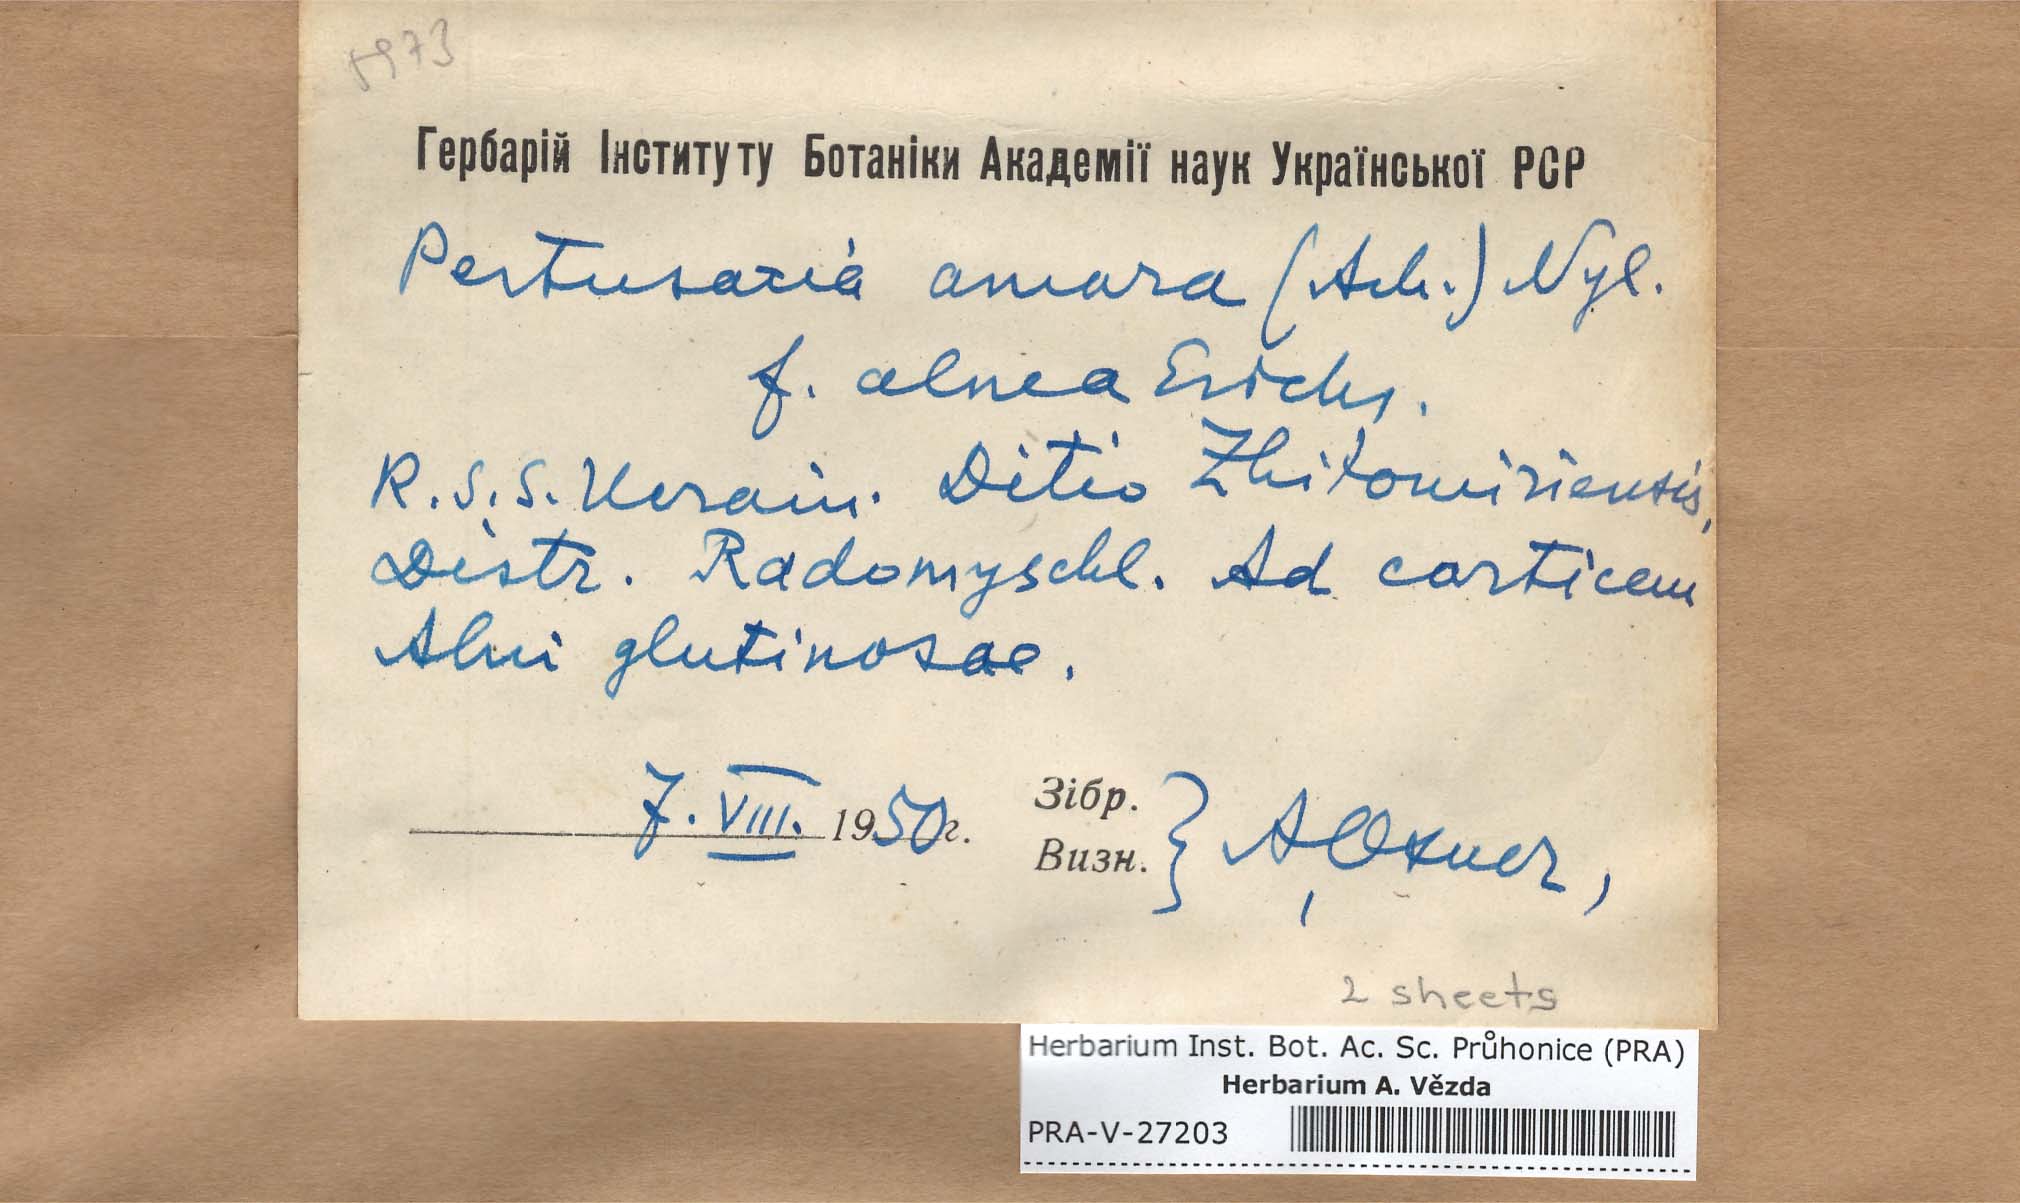 5973
Гербарій Інституту Ботаніки Академії наук Української РСР
Pertusaria amara (Ach.) Nyl.
f. alnea Erichs.
R.S.S. Ucrain. Ditio Zhitomiriensis,
Distr. Radomyschl. Ad corticem
Alni glutinosae.
7. VIII. 1950 г.
Зібр.
Визн. } A. Oxner,
2 sheets
Herbarium Inst. Bot. Ac. Sc. Průhonice (PRA)
Herbarium A. Vězda
PRA-V-27203